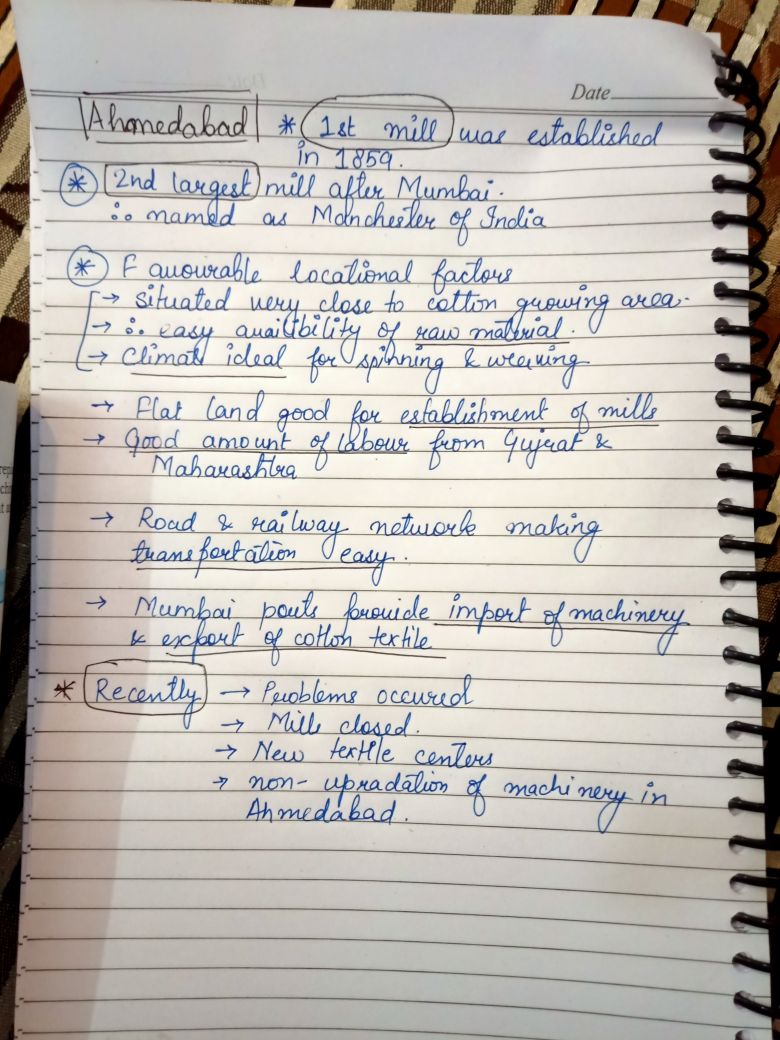 Date
Ahmedabad * 1st mill was established
in 1859.
* 2nd largest mill after Mumbai.
∴ named as Manchester of India
* Favourable locational factors
→ situated very close to cotton growing area.
→ ∴ easy availibility of raw material.
→ Climate ideal for spinning & weaving
→ Flat land good for establishment of mills
→ Good amount of labour from Gujrat &
Maharashtra
→ Road & railway network making
transportation easy.
→ Mumbai ports provide import of machinery
& export of cotton textile
* Recently → Problems occured
→ Mills closed.
→ New textile centers
→ non-upradation of machinery in
Ahmedabad.